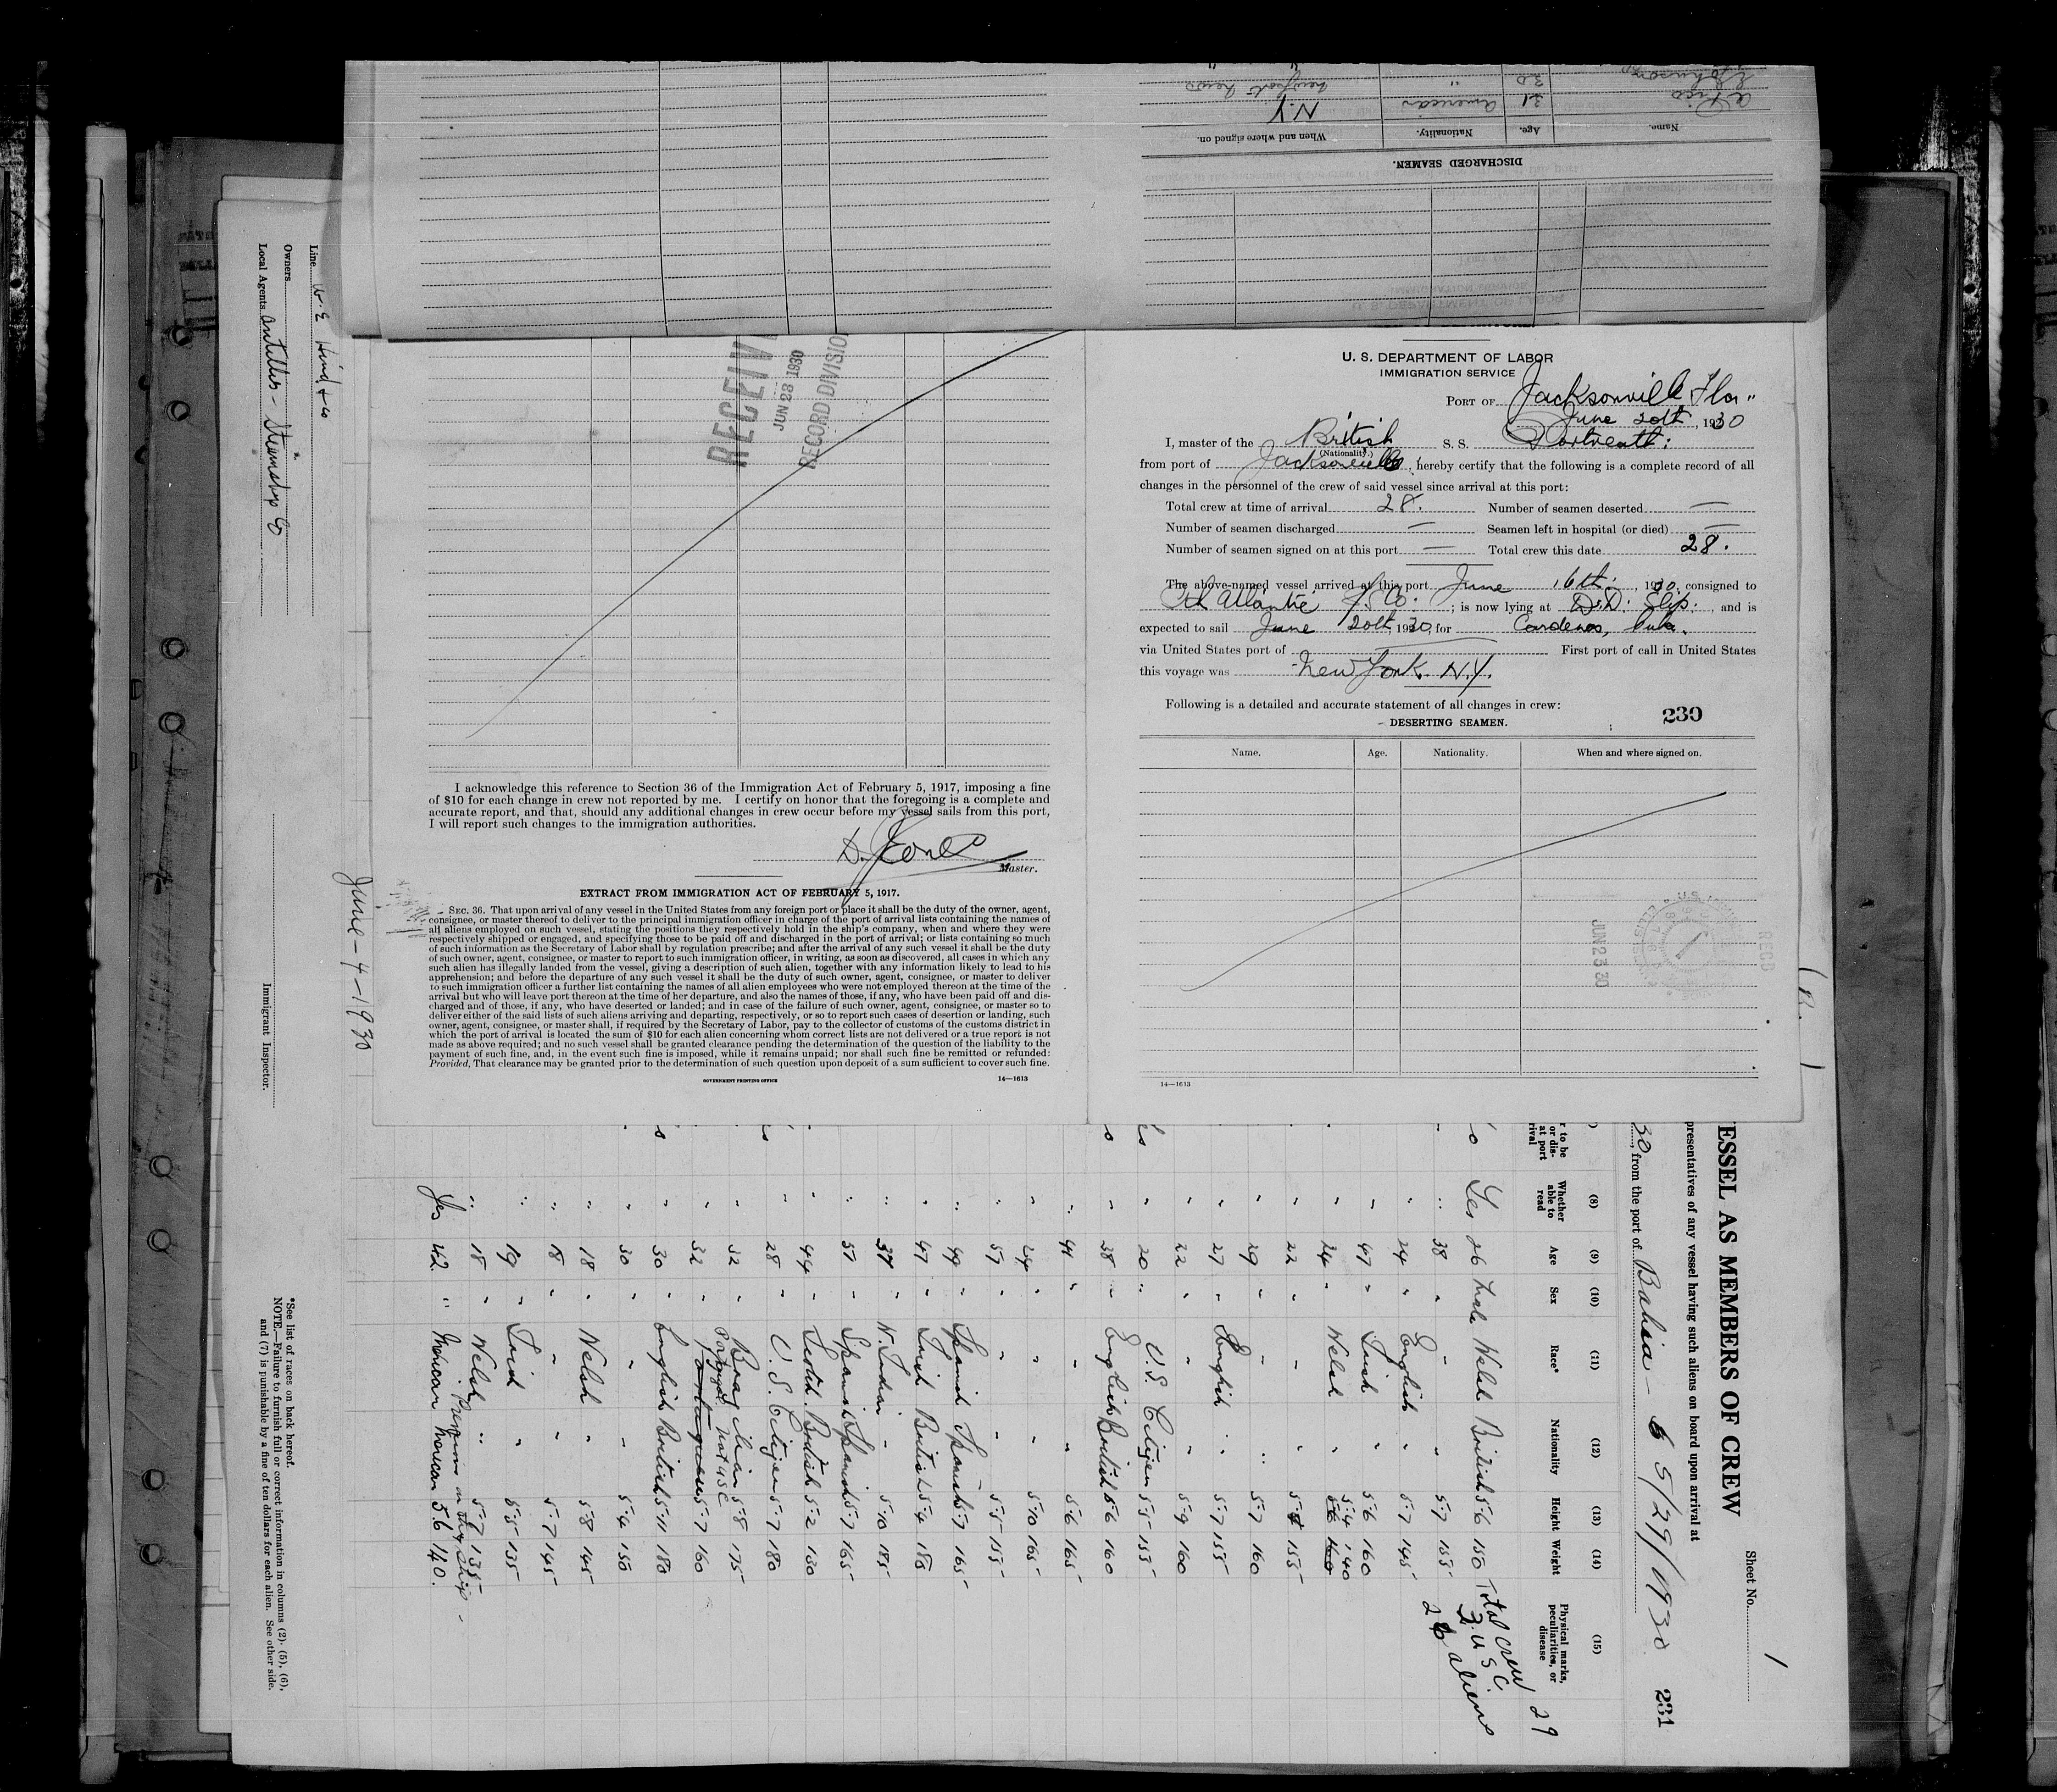 DISCHARGED SEAMEN.
Name. Age. Nationality. When and where signed on.
21 American N.Y.
20 " Newport News "
RECEIV
JUN 28 1930
RECORD DIVISIO
I acknowledge this reference to Section 36 of the Immigration Act of February 5, 1917, imposing a fine
of $10 for each change in crew not reported by me. I certify on honor that the foregoing is a complete and
accurate report, and that, should any additional changes in crew occur before my vessel sails from this port,
I will report such changes to the immigration authorities.
D. Jones
Master.
EXTRACT FROM IMMIGRATION ACT OF FEBRUARY 5, 1917.
SEC. 36. That upon arrival of any vessel in the United States from any foreign port or place it shall be the duty of the owner, agent,
consignee, or master thereof to deliver to the principal immigration officer in charge of the port of arrival lists containing the names of
all aliens employed on such vessel, stating the positions they respectively hold in the ship's company, when and where they were
respectively shipped or engaged, and specifying those to be paid off and discharged in the port of arrival; or lists containing so much
of such information as the Secretary of Labor shall by regulation prescribe; and after the arrival of any such vessel it shall be the duty
of such owner, agent, consignee, or master to report to such immigration officer, in writing, as soon as discovered, all cases in which any
such alien has illegally landed from the vessel, giving a description of such alien, together with any information likely to lead to his
apprehension; and before the departure of any such vessel it shall be the duty of such owner, agent, consignee, or master to deliver
to such immigration officer a further list containing the names of all alien employees who were not employed thereon at the time of the
arrival but who will leave port thereon at the time of her departure, and also the names of those, if any, who have been paid off and dis-
charged and of those, if any, who have deserted or landed; and in case of the failure of such owner, agent, consignee, or master so to
deliver either of the said lists of such aliens arriving and departing, respectively, or so to report such cases of desertion or landing, such
owner, agent, consignee, or master shall, if required by the Secretary of Labor, pay to the collector of customs of the customs district in
which the port of arrival is located the sum of $10 for each alien concerning whom correct lists are not delivered or a true report is not
made as above required; and no such vessel shall be granted clearance pending the determination of the question of the liability to the
payment of such fine, and, in the event such fine is imposed, while it remains unpaid; nor shall such fine be remitted or refunded:
Provided, That clearance may be granted prior to the determination of such question upon deposit of a sum sufficient to cover such fine.
GOVERNMENT PRINTING OFFICE 14—1613
U. S. DEPARTMENT OF LABOR
IMMIGRATION SERVICE
PORT OF Jacksonville Flor"
June 20th, 1930
I, master of the British S. S. Portreath:
(Nationality.)
from port of Jacksonville, hereby certify that the following is a complete record of all
changes in the personnel of the crew of said vessel since arrival at this port:
Total crew at time of arrival 28. Number of seamen deserted —
Number of seamen discharged — Seamen left in hospital (or died) —
Number of seamen signed on at this port — Total crew this date 28.
The above-named vessel arrived at this port June 16th, 1930, consigned to
Atlantic ; is now lying at D.D. Slip. , and is
expected to sail June 20th, 1930, for Cardenas, Cuba.
via United States port of — First port of call in United States
this voyage was New York. N.Y.
Following is a detailed and accurate statement of all changes in crew:
230
DESERTING SEAMEN.
Name. Age. Nationality. When and where signed on.
JUN 23 30
RECD
14—1613
Line W. E Hind & Co
Owners
Local Agents Antilles - Steamship Co
June - 4 - 1930
Immigrant Inspector.
Sheet No. 1
ESSEL AS MEMBERS OF CREW
presentatives of any vessel having such aliens on board upon arrival at
30, from the port of Bahia - 5/29/1930 231
(8) (9) (10) (11) (12) (13) (14) (15)
r to be or dis- at port rival
Whether able to read Age Sex Race* Nationality Height Weight Physical marks, peculiarities, or disease
Yes 26 Male Welsh British 5-6 150 Total crew 29
" 38 " " " 5-7 155 3 U S C
" 24 " English " 5-7 145 26 aliens
" 47 " Irish " 5-6 160
" 24 " Welsh " 5-4 140
" 22 " " " 155
" 29 " " " 5-7 160
" 27 " English " 5-7 155
" 22 " " " 5-9 160
" 20 " U.S. Citizen 5-5 155
" 38 " English British 5-6 160
" 41 " " " 5-6 165
" 24 " " " 5-10 165
" 57 " " " 5-5 155
" 49 " Spanish Spanish 5-7 165
" 47 " Irish British 5-4 185
" 37 " W. Indian " 5-10 185
" 57 " Spanish Spanish 5-7 165
" 44 " Scotch. British 5-2 130
" 28 " U.S. Citizen 5-7 180
" 32 " Brazilian 5-8 175
Portugal. Not U S C
" 32 " Portuguese 5-7 160
" 30 " English British 5-11 180
" 30 " " " 5-4 150
" 18 " Welsh " 5-8 145
" 18 " " " 5-7 145
" 19 " Irish " 5-5 135
" 18 " Welsh " 5-7 135
Yes 42 " Mexican Mexican 5.6 140.
*See list of races on back hereof.
NOTE.—Failure to furnish full or correct information in columns (2), (5), (6),
and (7) is punishable by a fine of ten dollars for each alien. See other side.